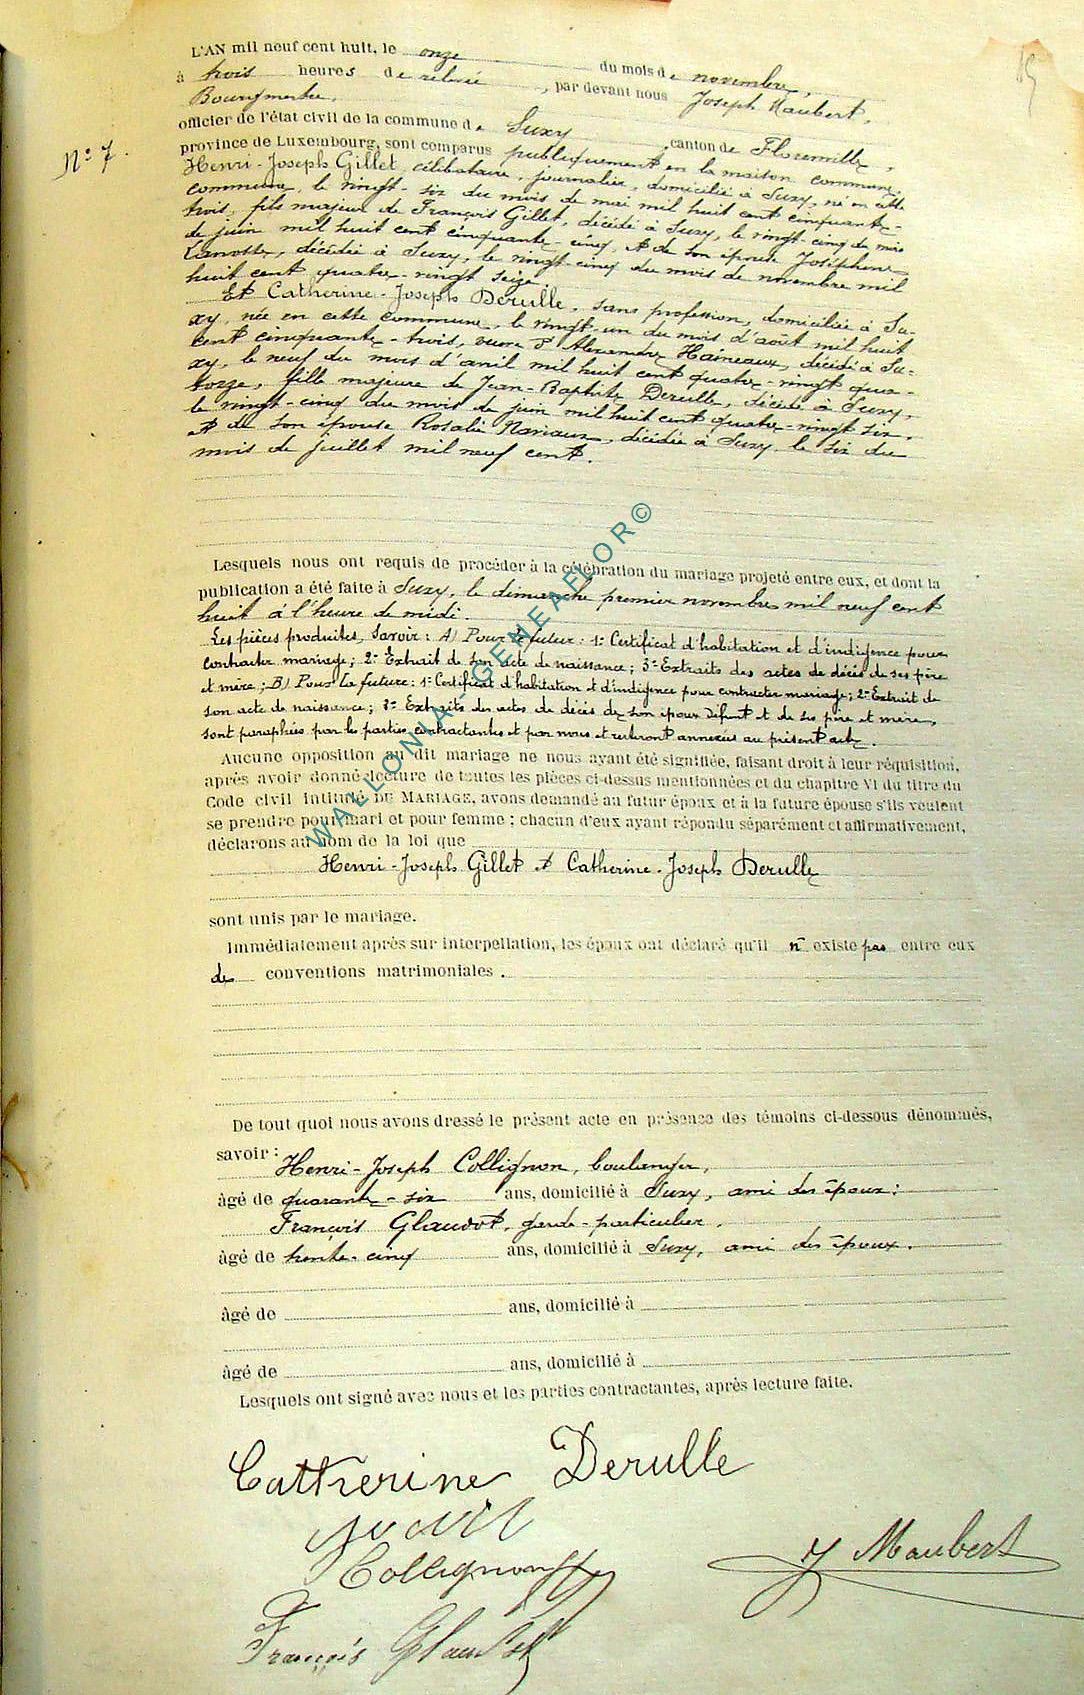 L'AN mil neuf cent huit, le onze du mois de novembre,
à trois heures de relevée, par devant nous Joseph Maubert,
Bourgmestre,
officier de l'état civil de la commune de Suxy, canton de Florenville,
province de Luxembourg, sont comparus publiquement en la maison commune,
Henri-Joseph Gillet, célibataire, journalier, domicilié à Suxy, né en cette
commune, le vingt-six du mois de mai mil huit cent cinquante-
trois, fils majeur de François Gillet, décédé à Suxy, le vingt-cinq du mois
de juin mil huit cent cinquante-cinq, et de son épouse Joséphine
décédée à Suxy, le vingt-cinq du mois de novembre mil
huit cent quatre-vingt seize;
Et Catherine-Joseph Derulle, sans profession, domiciliée à Su-
xy, née en cette commune, le vingt-un du mois d'août mil huit
cent cinquante-trois, veuve d'Alexandre Haineaux, décédé à Su-
xy, le neuf du mois d'avril mil huit cent quatre-vingt qua-
torze, fille majeure de Jean-Baptiste Derulle, décédé à Suxy,
le vingt-cinq du mois de juin mil huit cent quatre-vingt six,
et de son épouse Rosalie Mariaux, décédée à Suxy, le six du
mois de juillet mil neuf cent.
N° 7.
15
Lesquels nous ont requis de procéder à la célébration du mariage projeté entre eux, et dont la
publication a été faite à Suxy, le dimanche premier novembre mil neuf cent
huit à l'heure de midi.
Les pièces produites, savoir: A) Pour le futur: 1° Certificat d'habitation et d'indigence pour
contracter mariage; 2° Extrait de son acte de naissance; 3° Extraits des actes de décès de ses père
et mère; B) Pour la future: 1° Certificat d'habitation et d'indigence pour contracter mariage; 2° Extrait de
son acte de naissance; 3° Extraits des actes de décès de son époux défunt et de ses père et mère,
sont paraphées par les parties contractantes et par nous et resteront annexées au présent acte.
Aucune opposition au dit mariage ne nous ayant été signifiée, faisant droit à leur réquisition,
après avoir donné lecture de toutes les pièces ci-dessus mentionnées et du chapitre VI du titre du
Code civil intitulé DU MARIAGE, avons demandé au futur époux et à la future épouse s'ils veulent
se prendre pour mari et pour femme; chacun d'eux ayant répondu séparément et affirmativement,
déclarons au nom de la loi que
Henri-Joseph Gillet et Catherine-Joseph Derulle
sont unis par le mariage.
Immédiatement après sur interpellation, les époux ont déclaré qu'il n' existe pas entre eux
de conventions matrimoniales.
De tout quoi nous avons dressé le présent acte en présence des témoins ci-dessous dénommés,
savoir: Henri-Joseph Collignon, boulanger,
âgé de quarante-six ans, domicilié à Suxy, ami des époux;
François Glaudot, garde-particulier,
âgé de trente-cinq ans, domicilié à Suxy, ami des époux.
âgé de ans, domicilié à
âgé de ans, domicilié à
Lesquels ont signé avec nous et les parties contractantes, après lecture faite.
Catherine Derulle
Collignon
J Maubert
François Glaudot
WALLONIA-GENEAFLOR©